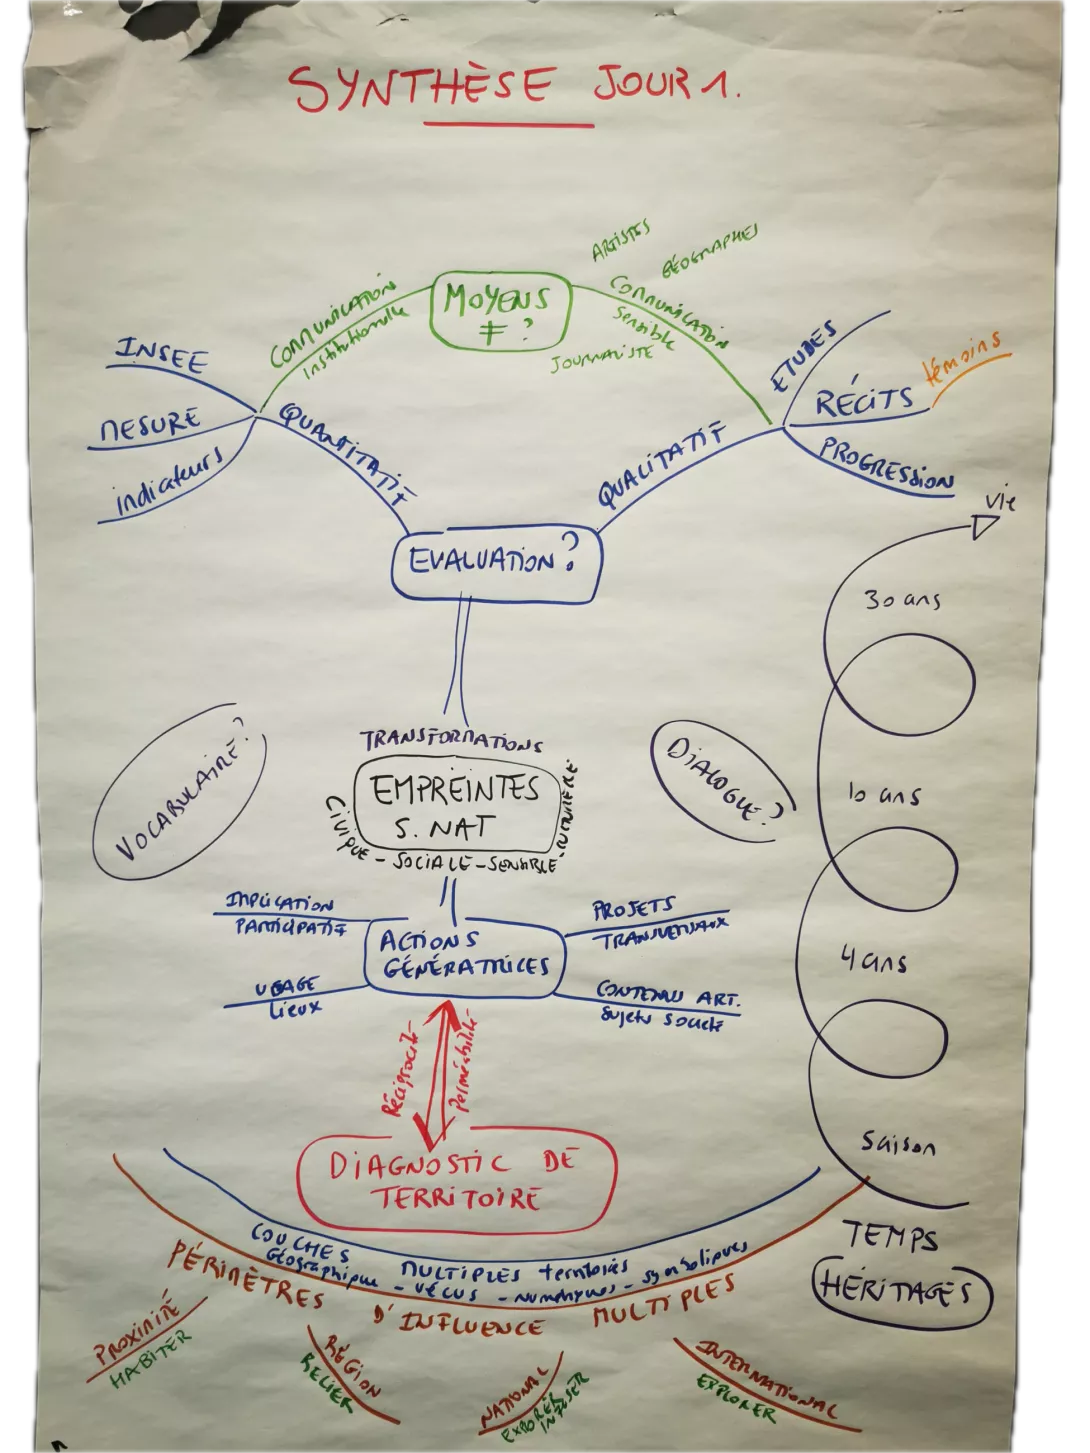 SYNTHÈSE JOUR 1.
ARTISTES
GÉOGRAPHES
MOYENS
≠ ?
COMMUNICATION
Institutionnelle
COMMUNICATION
Sensible
JOURNALISTE
INSEE
MESURE
indicateurs
QUANTITATIF
QUALITATIF
ETUDES
RÉCITS
témoins
PROGRESSION
EVALUATION ?
vie
30 ans
10 ans
4 ans
Saison
TEMPS
HÉRITAGES
VOCABULAIRE ?
DIALOGUE ?
TRANSFORMATIONS
EMPREINTES
S. NAT
Civique - SOCIALE - SENSIBLE -
IMPLICATION
PARTICIPATIF
USAGE
Lieux
ACTIONS
GÉNÉRATRICES
PROJETS
TRANSVERSAUX
CONTENU ART.
Sujets Société
Réciprocité
Perméabilité
DIAGNOSTIC DE
TERRITOIRE
COUCHES MULTIPLES territoires
Géographique - VÉCUS - numériques - symboliques
PÉRIMÈTRES D'INFLUENCE MULTIPLES
PROXIMITÉ
HABITER
RÉGION
RELIER
NATIONAL
INFUSER
INTERNATIONAL
EXPLORER